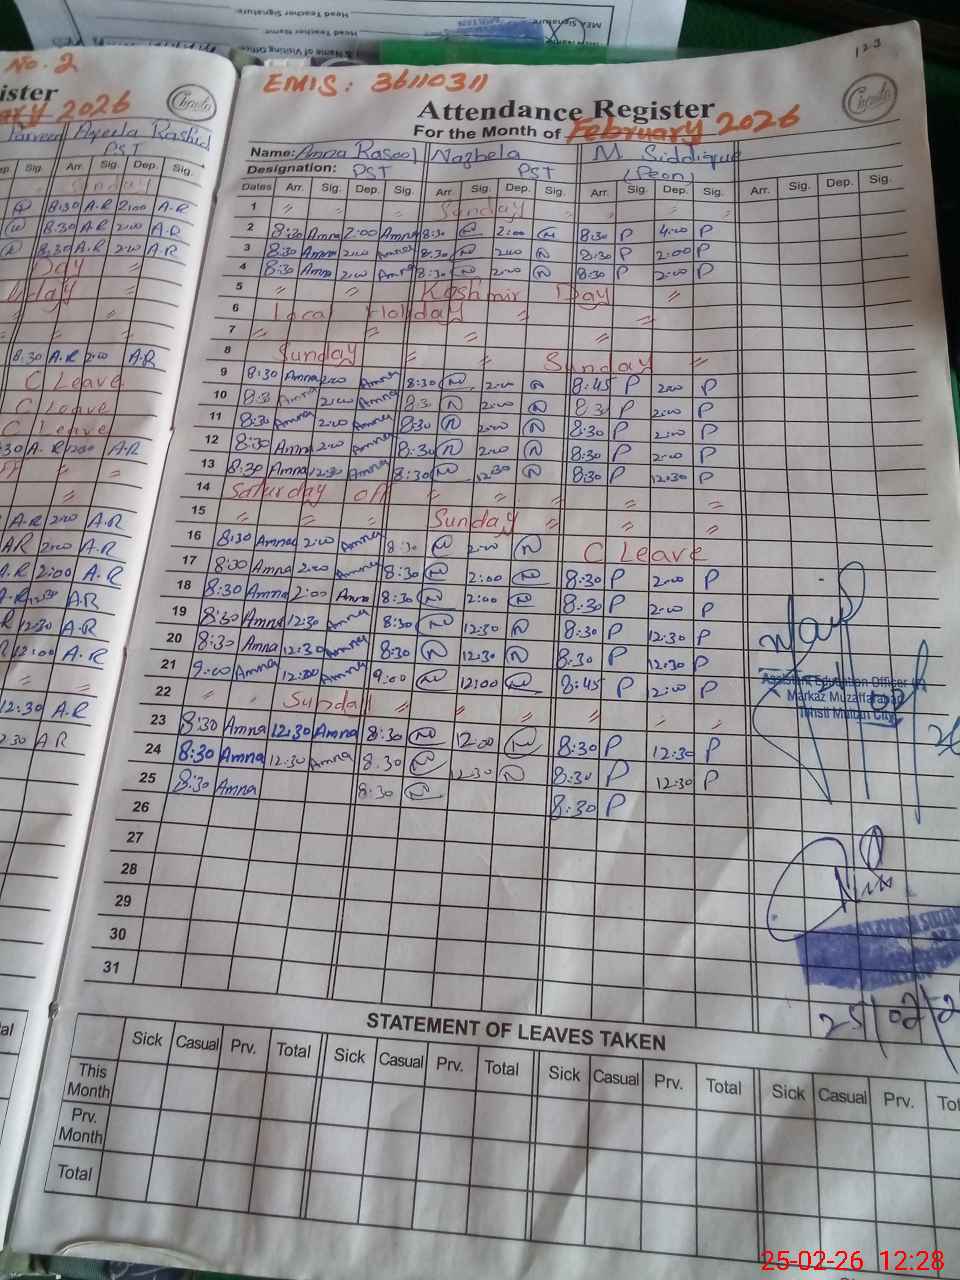 MEA Signature:
Head Teacher Signature:
Head Teacher Name:
No. 2
ister
2026
Parveen Aqeela Rashid
PST
Sig. Arr. Sig. Dep. Sig.
Sunday
8:30 A.R 2:00 A.R
8:30 A.R 2:00 A.R
8:30 A.R 2:00 A.R
Day "
8:30 A.R 2:00 A.R
C Leave
C Leave
C Leave
A.R 2:00 A.R
A.R 2:00 A.R
A.R 2:00 A.R
A.R 2:00 A.R
A.R 12:30 A.R
12:30 A.R
12:00 A.R
12:30 A.R
12:30 A.R
123
EMIS: 36110311
Chenta
Attendance Register
For the Month of February 2026
Name: Amna Rasool Nazbela M Siddique
Designation: PST PST (Peon)
Dates Arr. Sig. Dep. Sig. Arr. Sig. Dep. Sig. Arr. Sig. Dep. Sig. Arr. Sig. Dep. Sig.
1 " " Sunday " " "
2 8:30 Amna 2:00 Amna 8:30 N 2:00 N 8:30 P 4:00 P
3 8:30 Amna 2:00 Amna 8:30 N 2:00 N 8:30 P 2:00 P
4 8:30 Amna 2:00 Amna 8:30 N 2:00 N 8:30 P 2:00 P
5 " " Kashmir Day "
6 Local Holiday " "
7 " " " "
8 Sunday " " Sunday "
9 8:30 Amna 2:00 Amna 8:30 N 2:00 N 8:45 P 2:00 P
10 8:30 Amna 2:00 Amna 8:30 N 2:00 N 8:30 P 2:00 P
11 8:30 Amna 2:00 Amna 8:30 N 2:00 N 8:30 P 2:00 P
12 8:30 Amna 2:00 Amna 8:30 N 2:00 N 8:30 P 2:00 P
13 8:30 Amna 12:30 Amna 8:30 N 12:30 N 8:30 P 12:30 P
14 Saturday off " " " " "
15 " " " Sunday " " "
16 8:30 Amna 2:00 Amna 8:30 N 2:00 N C Leave
17 8:30 Amna 2:00 Amna 8:30 N 2:00 N 8:30 P 2:00 P
18 8:30 Amna 2:00 Amna 8:30 N 2:00 N 8:30 P 2:00 P
19 8:30 Amna 12:30 Amna 8:30 N 12:30 N 8:30 P 12:30 P
20 8:30 Amna 12:30 Amna 8:30 N 12:30 N 8:30 P 12:30 P
21 9:00 Amna 12:00 Amna 9:00 N 12:00 N 8:45 P 12:00 P
22 " " Sunday " " " " " "
23 8:30 Amna 12:30 Amna 8:30 N 12:00 N 8:30 P 12:30 P
24 8:30 Amna 12:30 Amna 8:30 N 12:30 N 8:30 P 12:30 P
25 8:30 Amna 8:30 N 8:30 P
26
27
28
29
30
31
Assistant Education Officer
Markaz Muzaffarabad
Tehsil Multan City
25/02/2
STATEMENT OF LEAVES TAKEN
Sick Casual Prv. Total Sick Casual Prv. Total Sick Casual Prv. Total Sick Casual Prv. Tot
This Month
Prv. Month
Total
25-02-26 12:28